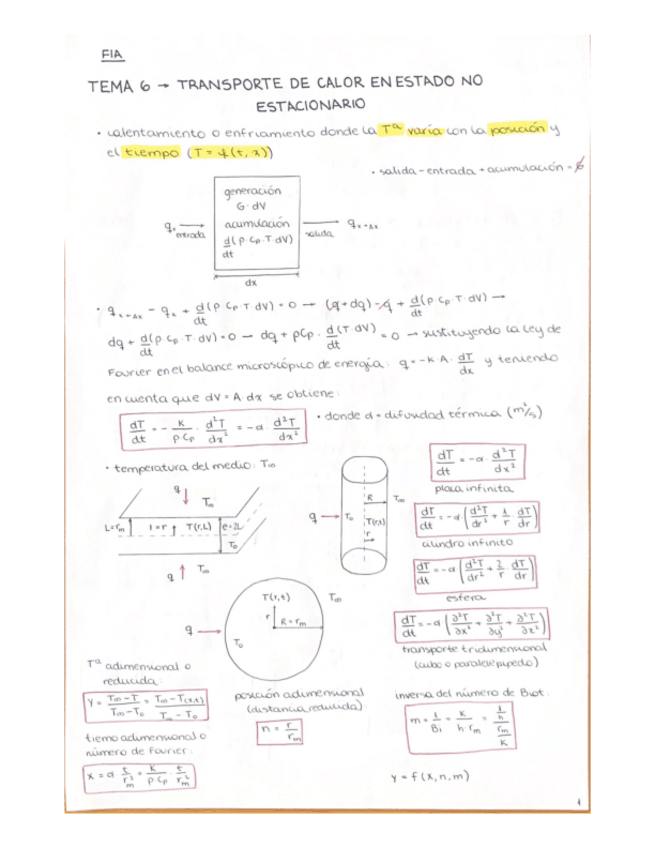 FIA
TEMA 6 → TRANSPORTE DE CALOR EN ESTADO NO
ESTACIONARIO
• calentamiento o enfriamiento donde la Tª varía con la posición y
el tiempo (T = f(t, x))
• salida - entrada + acumulación = 0
generación
G · dV
acumulación
d(ρ · Cp · T · dV)
dt
qx entrada
salida
qx+Δx
dx
• qx+Δx - qx + d/dt (ρ Cp T dV) = 0 → (q + dq) - q + d/dt (ρ · Cp · T · dV) →
dq + d/dt (ρ · Cp · T · dV) = 0 → dq + ρCp · d(T · dV)/dt = 0 → sustituyendo la ley de
Fourier en el balance microscópico de energía: q = -K · A · dT/dx y teniendo
en cuenta que dV = A · dx se obtiene:
dT/dt = - K/(ρ · Cp) · d²T/dx² = -α · d²T/dx²
• donde α = difusidad térmica (m²/s)
• temperatura del medio: T∞
dT/dt = -α · d²T/dx²
placa infinita
q
T∞
L=rm
l=r
T(r,L)
e=2L
T0
q
T∞
q
T0
R
T(r,t)
r
T∞
dT/dt = -α (d²T/dr² + 1/r · dT/dr)
cilindro infinito
dT/dt = -α (d²T/dr² + 2/r · dT/dr)
esfera
T(r,t)
r
R = rm
T∞
q
T0
dT/dt = -α (∂²T/∂x² + ∂²T/∂y² + ∂²T/∂z²)
transporte tridimensional
(cubo o paralelepípedo)
Tª adimensional o
reducida:
Y = (T∞ - T)/(T∞ - T0) = (T∞ - T(x,t))/(T∞ - T0)
posición adimensional
(distancia reducida):
n = r/rm
inversa del número de Biot:
m = 1/Bi = K/(h · rm) = (1/h)/(rm/K)
tiemo adimensional o
número de Fourier:
X = α · t/rm² = K/(ρ · Cp) · t/rm²
Y = f(X, n, m)
1